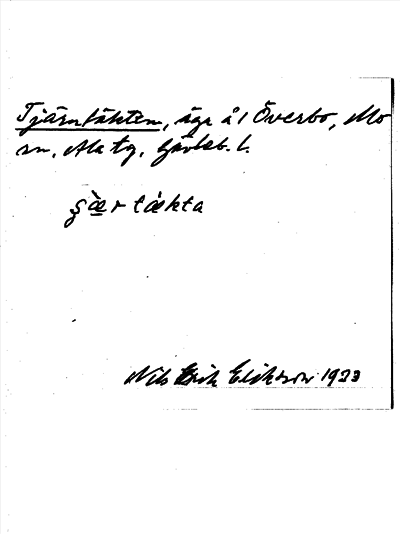 Tjärntäkten, äga å 1 Överbo, Mo
sn, Ala tg, Gävleb. l.
ʂæ̀r tækta
Nils Erik Eriksson 1933